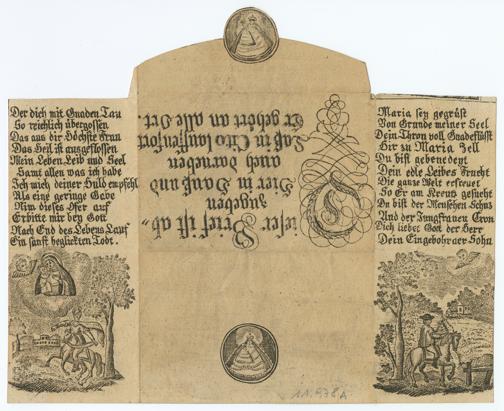 Der dich mit Gnaden Tau
So reichlich übergossen
Das aus dir Höchste Frau
Das Heil ist ausgeflossen
Mein Leben Leib und Seel
Samt allen was ich habe
Ich mich deiner Huld empfehl
Als eine geringe Gabe
Nim dieses Ofer auf
Erbitte mir bey Gott
Nach End des Lebens Lauf
Ein sanft beglickten Todt.
Dieser Brief ist ab=
zugeben
Hier in Hauß und
auch darneben
Laß in Cito lauffen fort
Er gehört an alle Ort.
Maria sey gegrüst
Von Grunde meiner Seel
Dein Thron voll Gnade flüst
Hir zu Maria Zell
Du bist gebenedeyt
Dein edle Leibes Frucht
Die ganze Welt erfreuet
So Er am Kreutz gesucht
Du bist der Menschen Schutz
Und der Jungfrauen Cron
Dich liebet Gott der Herr
Dein Eingebohrner Sohn